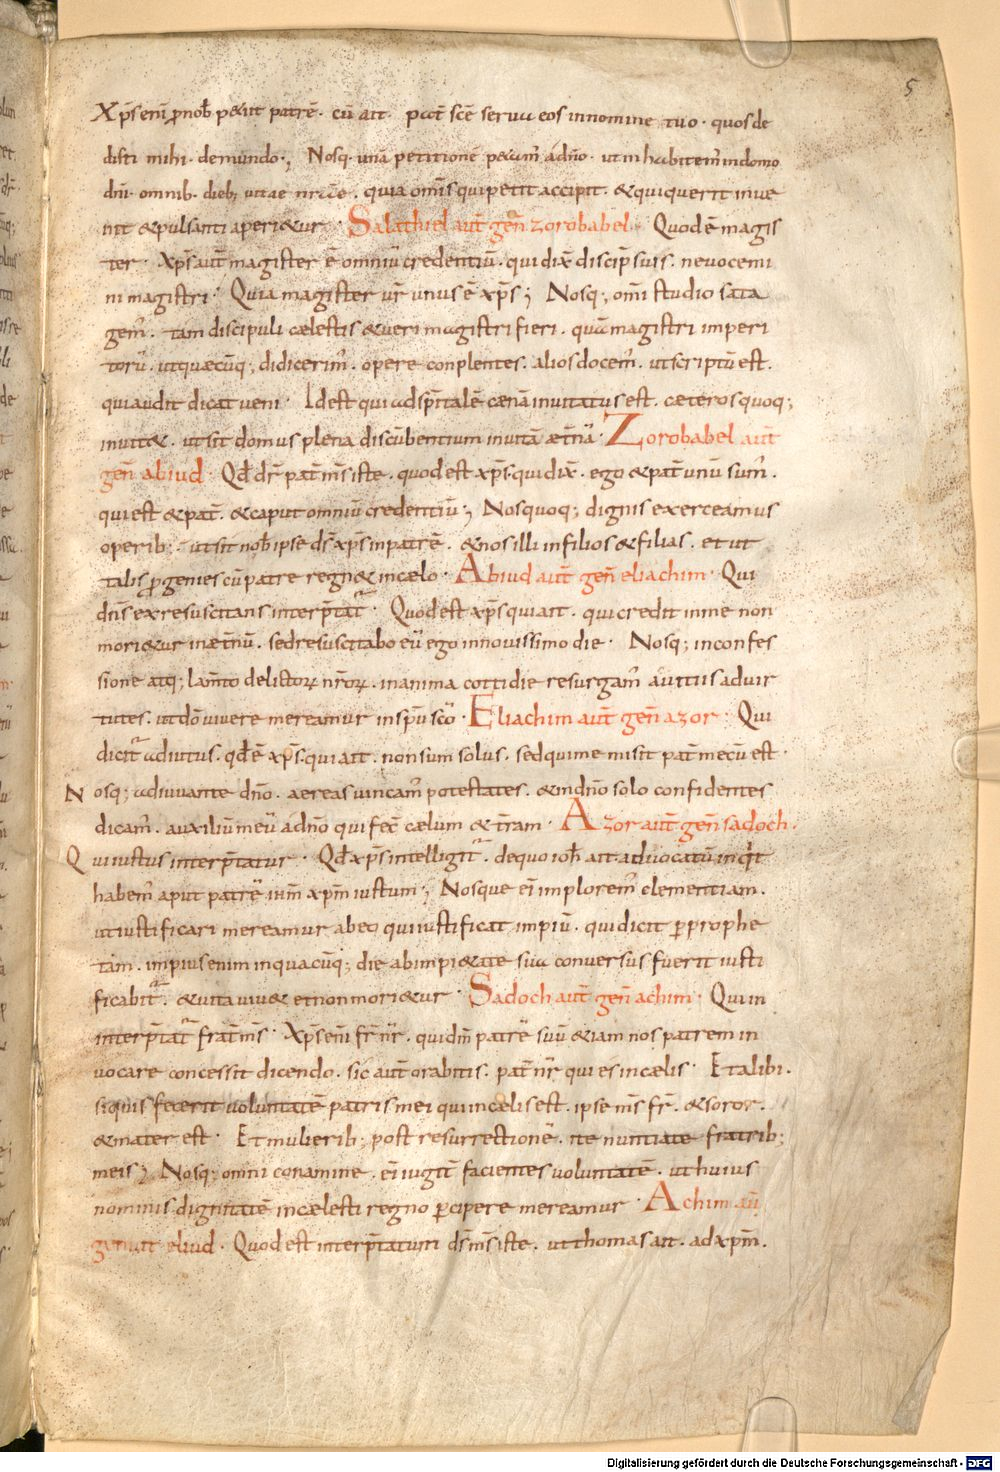 5
Xp̄s enī pnob̄ petiit patrē. cū ait. pat̄ scē serua eos innomine tuo. quos de
disti mihi. demundo; Nosq. unā petitionē petam̄ adn̄o. ut inhabitem̄ indomo
dn̄i. omnib. dieb; uitae nr̄ae. quia om̄is quipetit accipit. & quiquerit inue
nit & pulsanti aperi&ur. Salathiel aut̄ gen̄ zorobabel. Quodē magis
ter. Xp̄s aut̄ magister ē omniū credentiū. qui dix̄ discip̄ suis. neuocemi
ni magistri. Quia magister ur̄ unus ē xp̄s; Nosq; om̄i studio sata
gem̄. tam discipuli cælestis & ueri magistri fieri. quā magistri imperi
torū. utquæcūq; didicerim̄. opere conplentes. alios docem̄. utscriptū est.
quiaudit dicat ueni. Idest qui adsp̄italē cænā inuitatus est. cæteros quoq;
inuit&. utsit domus plena discūbentium inuitā æt̄nā. Zorobabel aut̄
gen̄ abiud. Qd̄ dr̄ pat̄ m̄s iste. quodest xp̄s. quidix̄. ego & pat̄ unū sum̄.
quiest & pat̄. & caput omniū credentiū; Nosquoq; dignis exerceamus
operib;. utsit nob̄ ipse ds̄ xp̄s inpatrē. & nos illi infilios & filias. et ut
talis pgenies cū patre regn& incælo. Abiud aut̄ gen̄ eliachim. Qui
dn̄s exresuscitans interp̄tat̄. Quodest xp̄s quiait. qui credit inme non
mori&ur inæt̄nū. sedresuscitabo eū ego innouissimo die. Nosq; inconfes
sione atq; lam̄to delictoꝝ nr̄oꝝ. inanima cottidie resurgam̄ auitiis aduir
tutes. utdō uiuere mereamur inspū scō. Eliachim aut̄ gen̄ azor. Qui
dicit̄ adiutus. qd̄ē xp̄s. qui ait. nonsum solus. sedquime misit pat̄ mecū est.
Nosq; adiuuante dn̄o. aereas uincam̄ potestates. & indn̄o solo confidentes
dicam̄. auxiliū meū adn̄o qui fec̄ cælum & t̄ram. Azor aut̄ gen̄ sadoch.
Qui iustus interp̄tatur. Qd̄ xp̄s intelligit̄. dequo ioh̄ ait. aduocatū inq̄t
habem̄ aput patrē ihm̄ xpm̄ iustum; Nosque eī implorem̄ clementiam.
utiustificari mereamur abeo quiiustificat impiū. quidicit pprophe
tam. impius enim inquacūq; die abimpi&ate sua conuersus fuerit iusti
ficabit̄. & uita uiu& etnonmori&ur. Sadoch aut̄ gen̄ achim. Quiin
interp̄tat̄ frat̄ m̄s. Xp̄s enī fr̄ nr̄. quidm̄ patrē suū & iam nos patrem in
uocare concessit dicendo. sic aut̄ orabitis. pat̄ nr̄ qui es incælis. Et alibi.
siquis fecerit uoluntatē patris mei quiincælis est. ipse m̄s fr̄. & soror.
& mater est. Et mulierib; post resurrectionē. ite nuntiate fratrib;
meis; Nosq; omni conamine. eī iugit̄ facientes uoluntatē. ut huius
nominis dignitatē incælesti regno pcipere mereamur. Achim au̅
genuit eliud. Quodest interp̄tatum ds̄ m̄s iste. ut thomas ait. ad xpm̄.
Digitalisierung gefördert durch die Deutsche Forschungsgemeinschaft - DFG